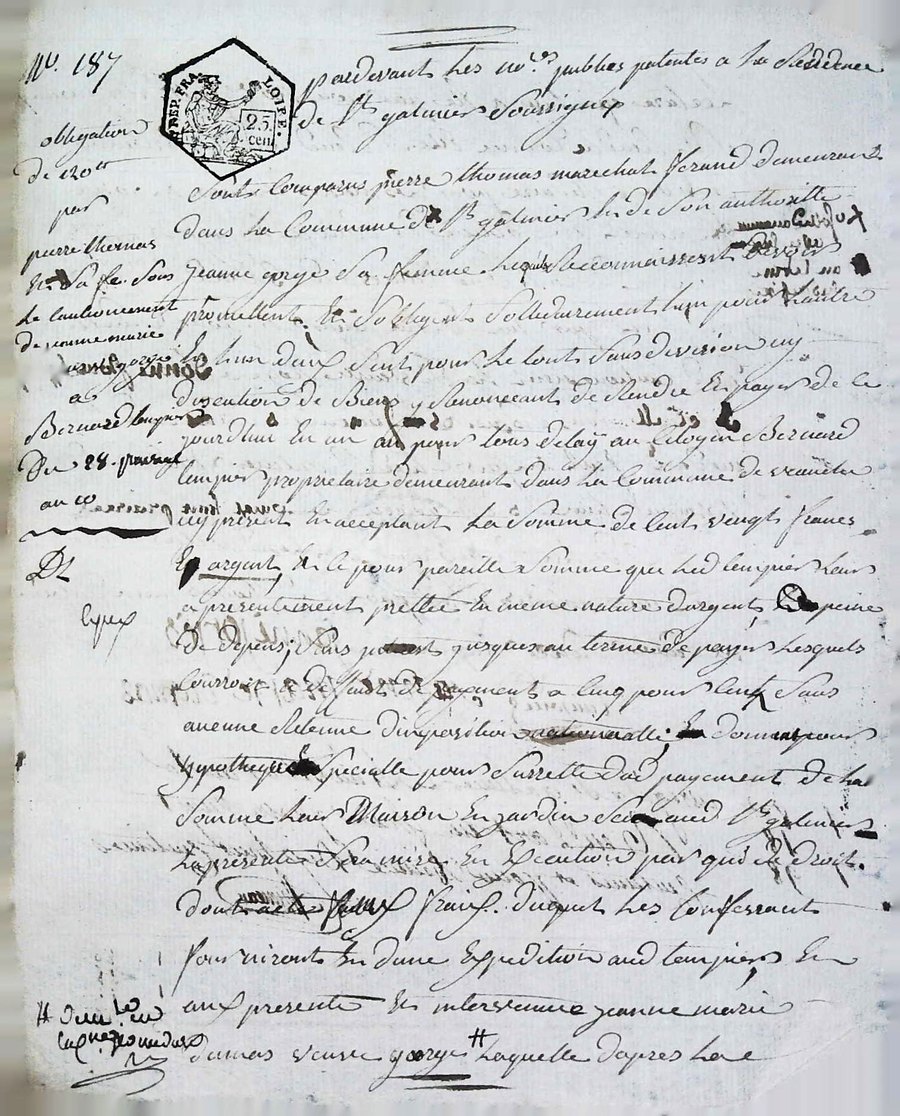 No. 187
REP. FRA.
LOIRE.
25
cen
obligation
de 120tt
par
pierre thomas
et sa fe. sous
le cautionnement
de jeanne marie
a
Bernard
Du 28. prairial
an 10
Expex
pardevant les no.res publics patentés a la Residence
de St galmier Soussignex
Sont Comparus pierre thomas marechal demeurant
dans la Commune de St galmier et de Son authorité
jeanne george Sa femme lesquels Reconnaissent devoir
promettent et Sobligent Sollidairement l'un pour l'autre
un d'eux Seul pour le tout Sans division ny
discution de Biens y Renonceant de Rendre et payer de ce
jourdhui en un an pour tous delay au Citoyen Bernard
proprietaire demeurant dans la Commune de
cy present et acceptant La Somme de Cent vingt francs
En argent, et ce pour pareille Somme que led leur
a presentement prettée en meme nature d'argent, a peine
de depens; jusques au terme de payer Lesquels
de payement a cinq pour cent Sans
aucune Retenue d'imposition nationalle; et donnent pour
hypotheque Specialle pour Surretté dud payement de la
Somme leur Maison et jardin aud St galmier
La presente Sera mise en execution par qui de droit.
dont fraix duquel les Confessants
fourniront d'une expedition aud et
aux presente Est intervenue jeanne marie
dumas veuve george # Laquelle d'apres la